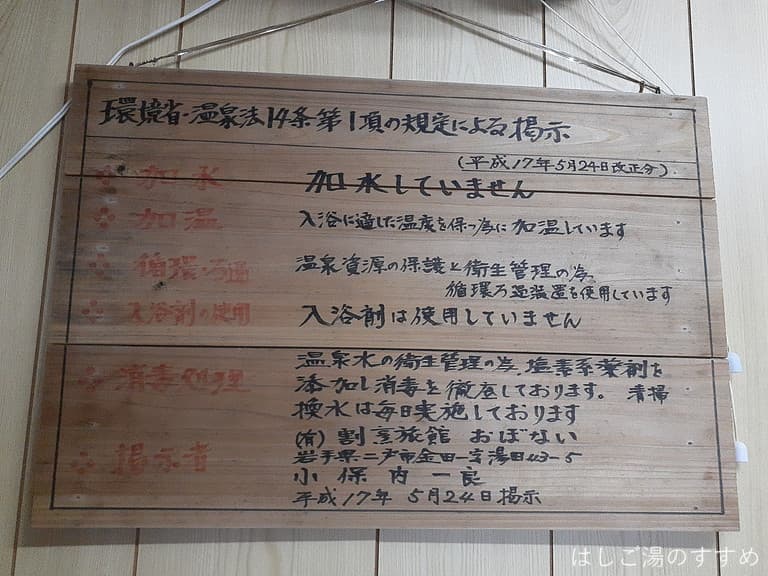 環境省・温泉法14条第1項の規定による掲示
(平成17年5月24日改正分)
加水 加水していません
加温 入浴に適した温度を保つ為に加温しています
循環ろ過 温泉資源の保護と衛生管理の為、
循環ろ過装置を使用しています
入浴剤の使用 入浴剤は使用していません
消毒処理 温泉水の衛生管理の為、塩素系薬剤を
添加し消毒を徹底しております。 清掃
換水は毎日実施しております
掲示者 (有)割烹旅館 おぼない
岩手県二戸市金田一字湯田43-5
小保内一良
平成17年 5月24日掲示
はしご湯のすすめ